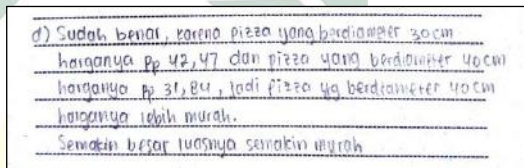 d) Sudah benar, karena pizza yang berdiameter 30cm
harganya Rp 42,47 dan pizza yang berdiameter 40cm
harganya Rp 31,84, jadi pizza yg berdiameter 40cm
harganya lebih murah.
Semakin besar luasnya semakin murah